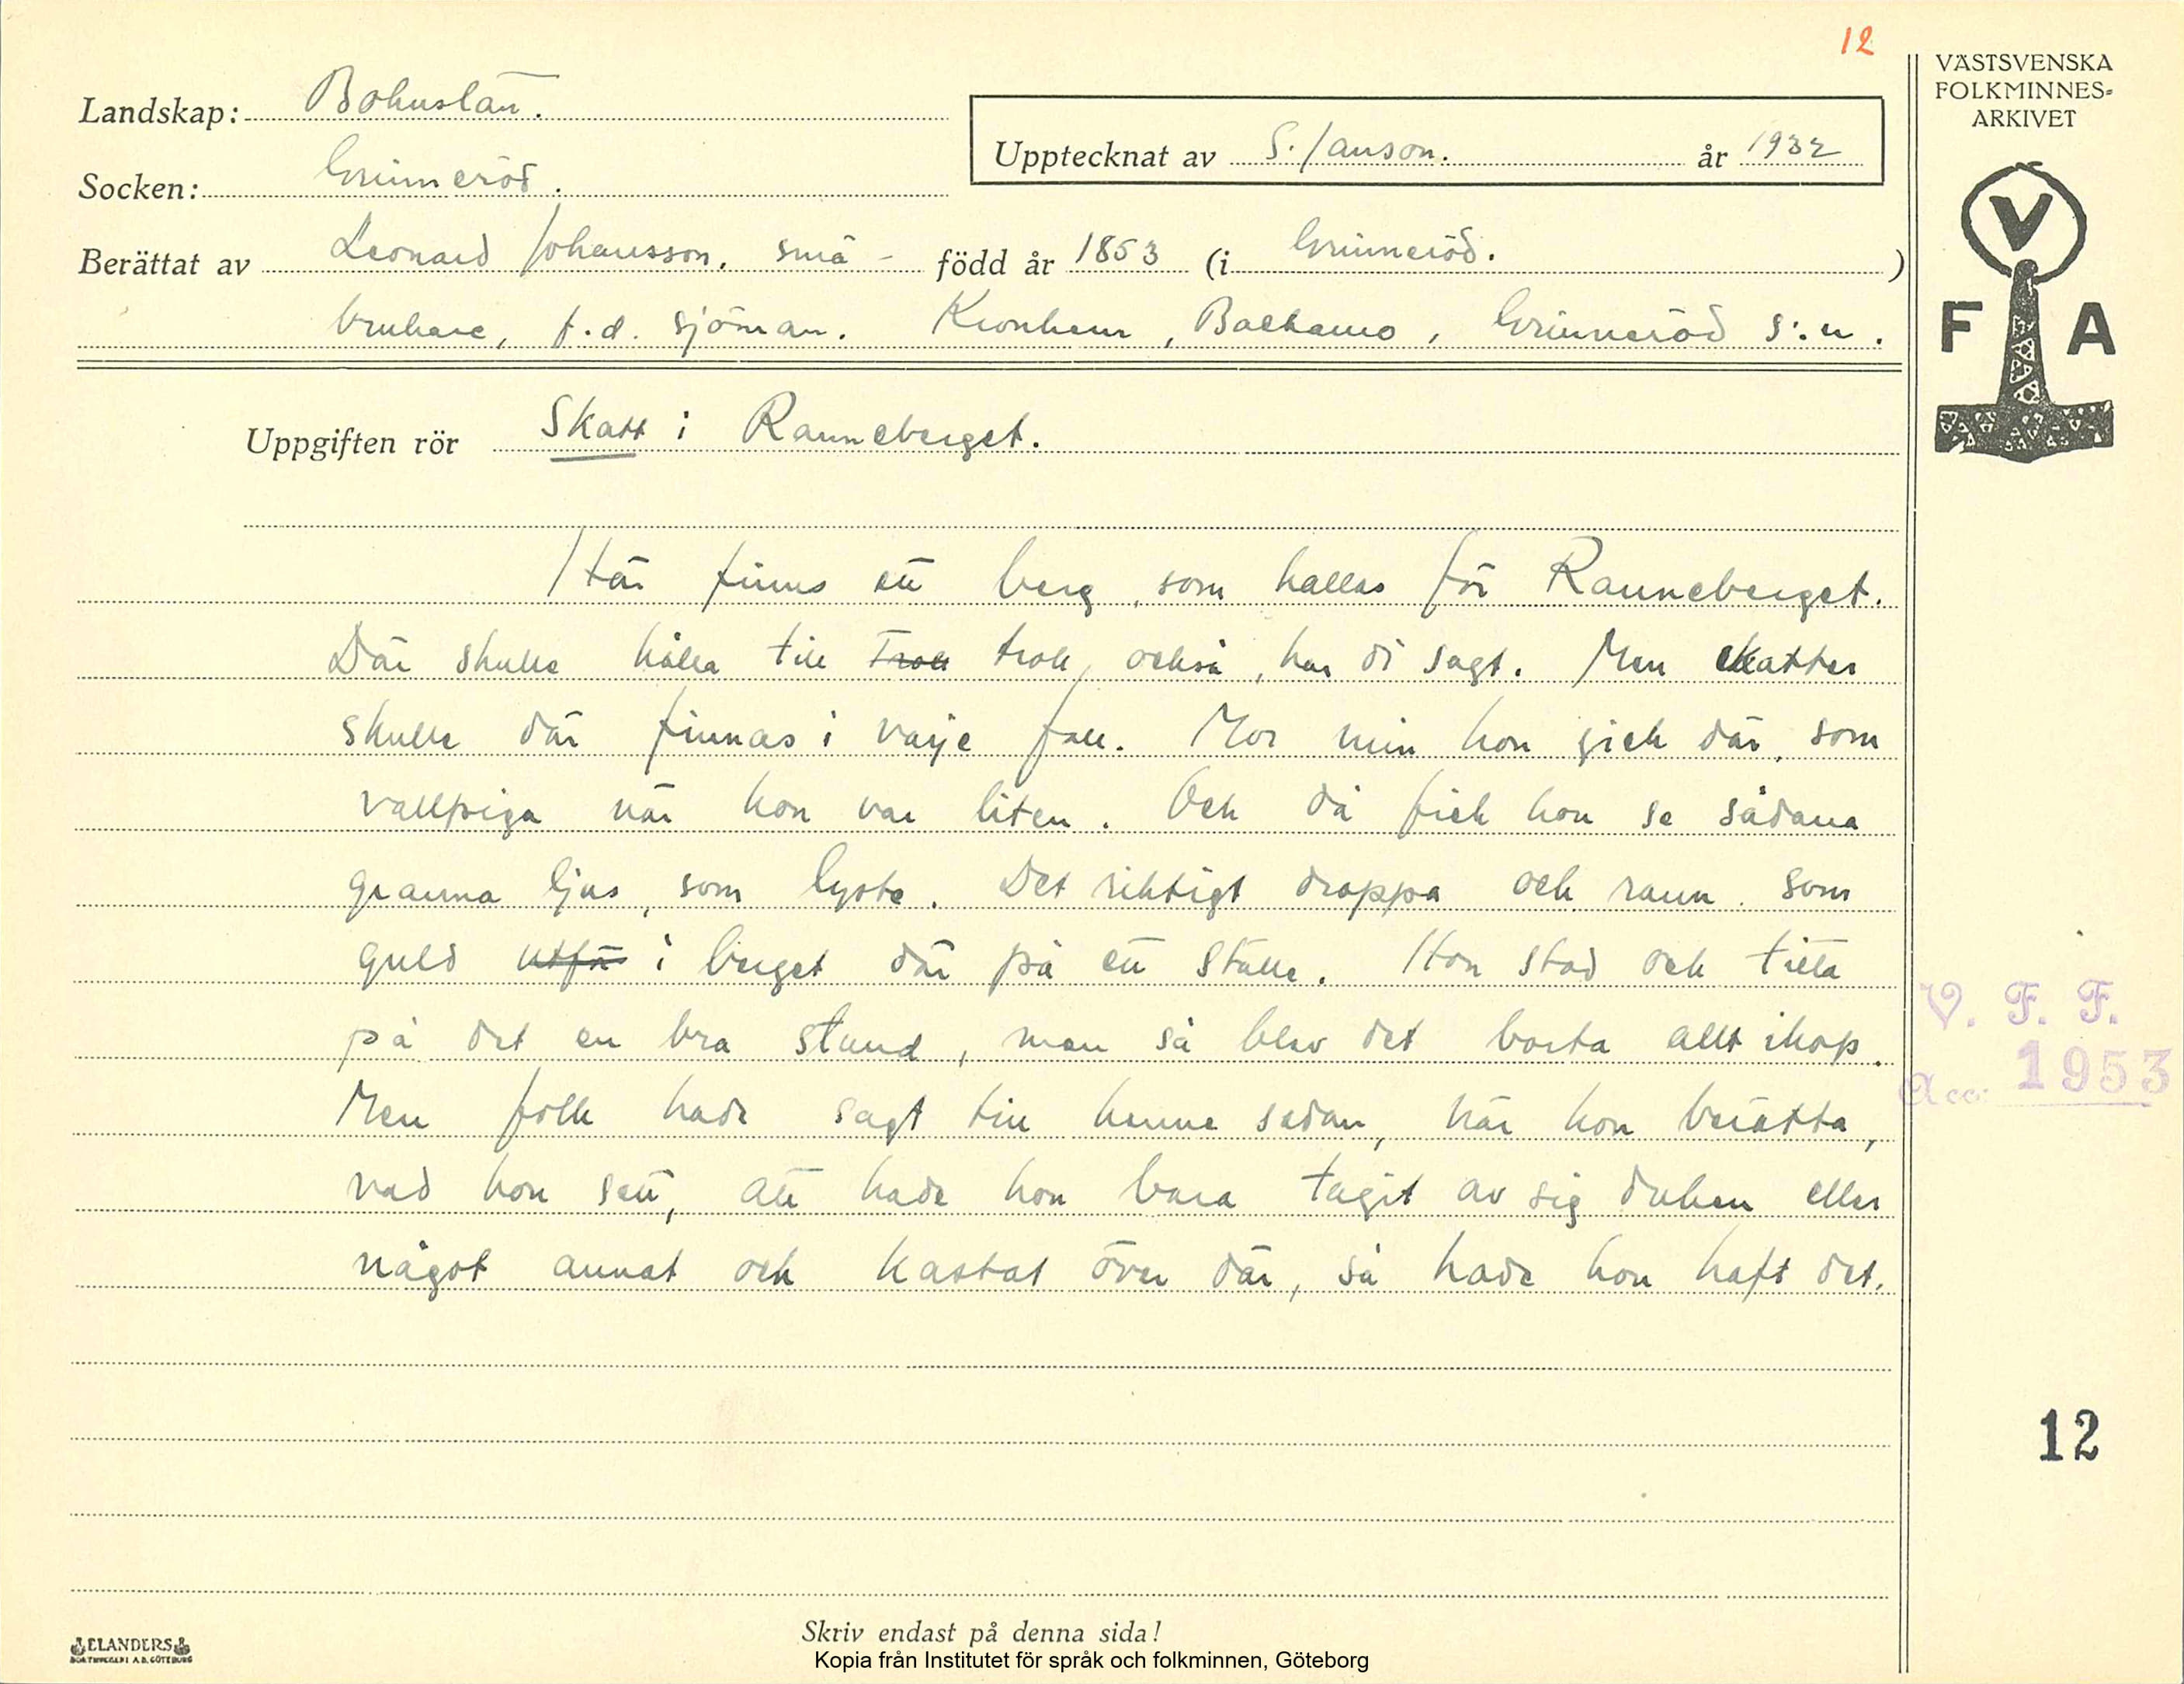 12
VÄSTSVENSKA
FOLKMINNES-
ARKIVET
Landskap: Bohuslän.
Upptecknat av S. Janson. år 1932
Socken: Grinneröd.
Berättat av Leonard Johansson, små- född år 1853 (i Grinneröd. )
brukare, f.d. sjöman. Kronhem, Backamo, Grinneröd s:n.
V
F A
Uppgiften rör Skatt i Ranneberget.
Här finns ett berg, som kallas för Ranneberget.
Där skulle hålla till Troll troll också, har di sagt. Men skatter
skulle där finnas i varje fall. Mor min hon gick där som
vallpiga när hon var liten. Och då fick hon se sådana
granna ljus, som lyste. Det riktigt droppa och rann som
guld utför i berget där på ett ställe. Hon stod och titta
på det en bra stund, men så blev det borta allt ihop.
Men folk hade sagt till henne sedan, när hon berätta,
vad hon sett, att hade hon bara tagit av sig duken eller
något annat och kastat över där, så hade hon haft det.
V. F. F.
Acc: 1953
12
Skriv endast på denna sida!
ELANDERS
BOKTRYCKERI A.B. GÖTEBORG
Kopia från Institutet för språk och folkminnen, Göteborg